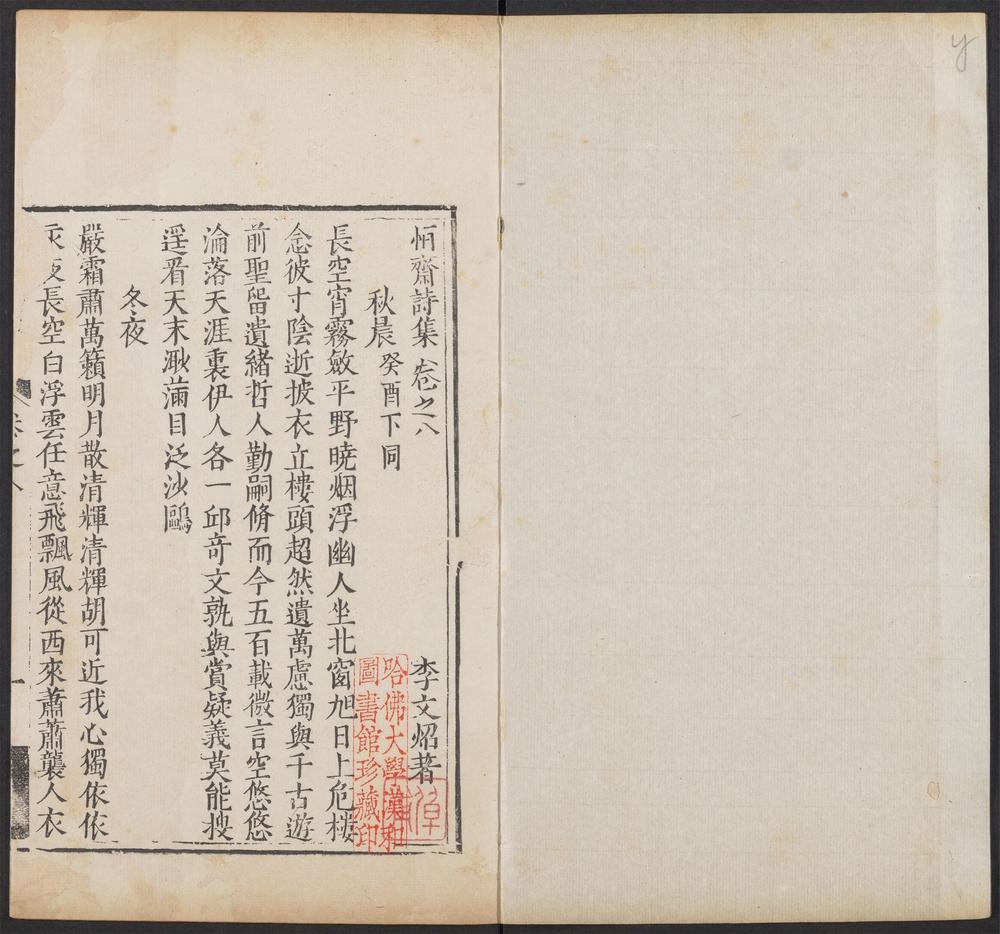 恒齋詩集卷之八
李文炤著
秋晨癸酉下同
長空宵霧斂平野曉烟浮幽人坐北窗旭日上危樓
念彼寸陰逝披衣立樓頭超然遺萬慮獨與千古遊
前聖畱遺緒哲人勤嗣脩而今五百載微言空悠悠
淪落天涯裏伊人各一邱奇文孰與賞疑義莫能搜
遥看天末渺滿目泛沙鷗
冬夜
嚴霜肅萬籟明月散清輝清輝胡可近我心獨依依
夜長空白浮雲任意飛飄風從西來蕭蕭襲人衣
卷之八
一
哈佛大學漢和
圖書館珍藏印
y